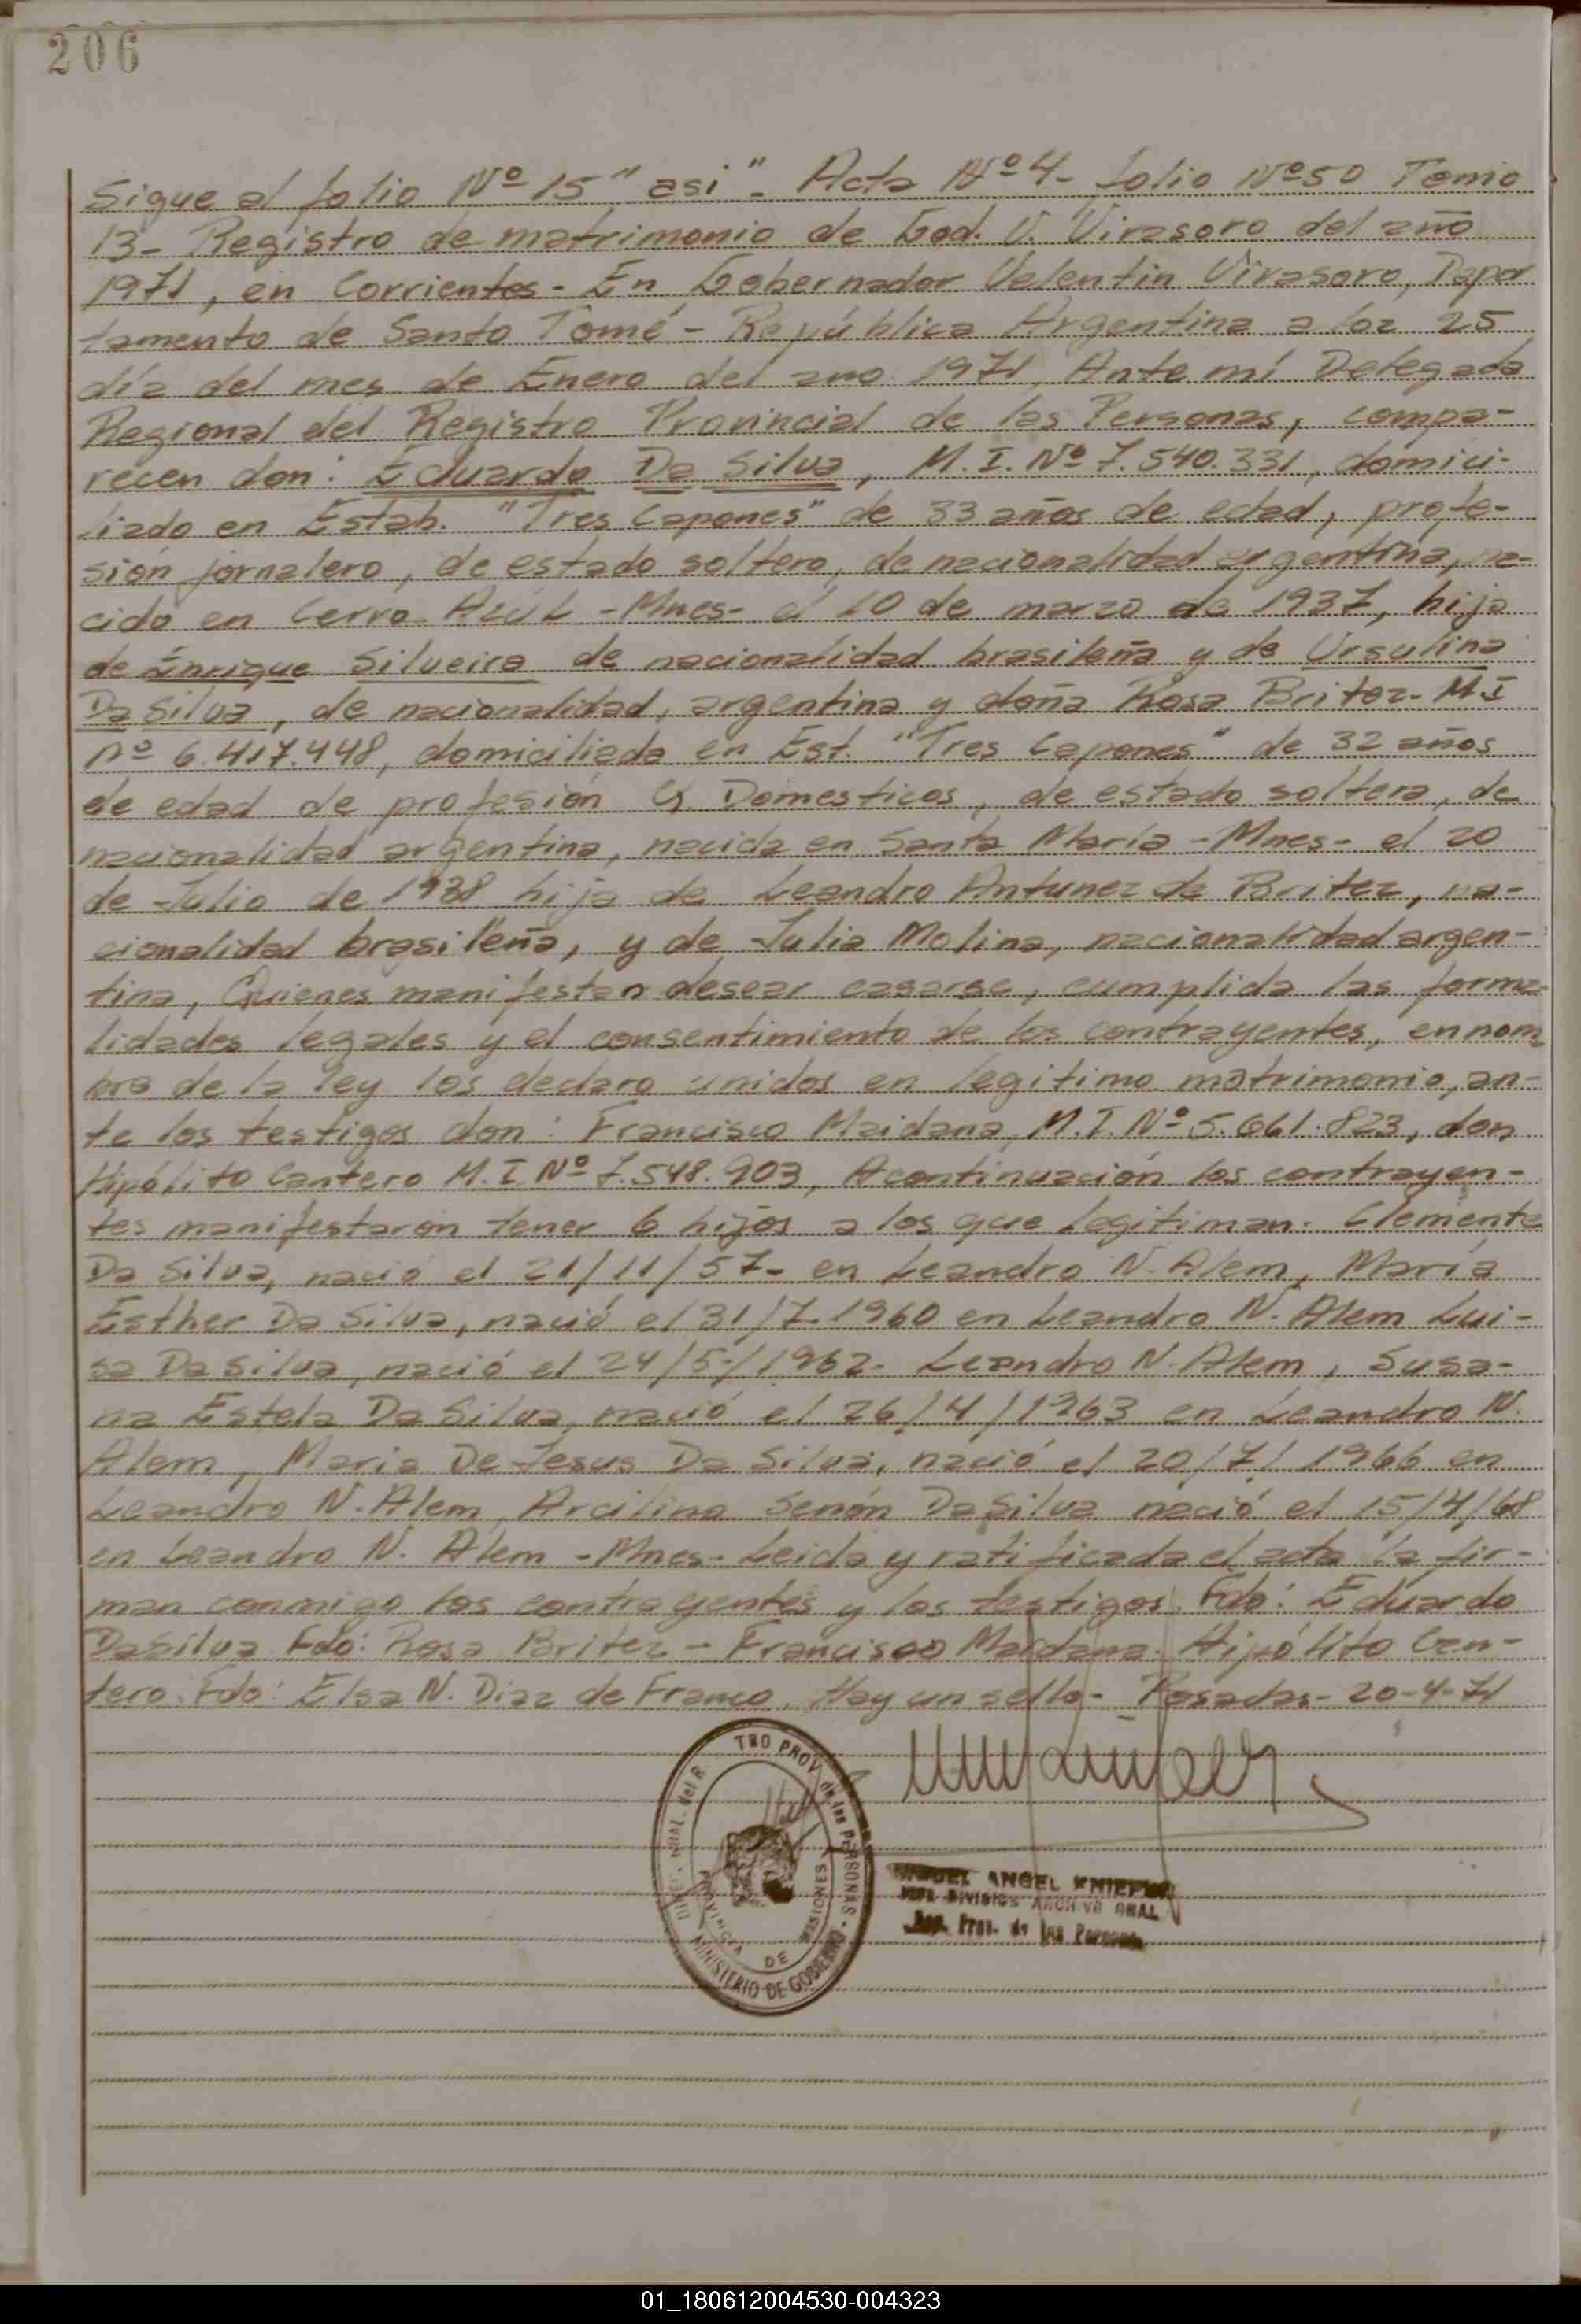 206
Sigue al folio Nº 15 "asi"- Acta Nº 4- folio Nº 50 Tomo
13- Registro de matrimonio de God. V. Virasoro del año
1971, en Corrientes- En Gobernador Valentin Virasoro, Depar
tamento de Santo Tomé - República Argentina a los 25
día del mes de Enero del ano 1971, Ante mí Delegada
Regional del Registro Provincial de las Personas, compa-
recen don: Eduardo Da Silva, M.I. Nº 7.540.331, domici-
liado en Estab. "Tres Capones" de 33 años de edad, profe-
sión jornalero, de estado soltero, de nacionalidad argentina, na-
cido en Cerro Azúl -Mnes- el 10 de marzo de 1937, hijo
de Enrique Silveira de nacionalidad brasileña y de Ursulina
Da Silva, de nacionalidad, argentina y doña Rosa Britez- M.I
nº 6.417.448, domiciliada en Est. "Tres Capones" de 32 años
de edad de profesión Q. Domesticos, de estado soltera, de
nacionalidad argentina, nacida en Santa María -Mnes- el 20
de Julio de 1938 hija de Leandro Antunez de Britez, na-
cionalidad brasileña, y de Julia Molina, nacionalidad argen-
tina, Quienes manifestan desear casarse, cumplida las forma-
lidades legales y el consentimiento de los contrayentes, en nom
bre de la ley los declaro unidos en legitimo matrimonio, an-
te los testigos don: Francisco Maidana, M.I. Nº 5.661.823, don
Hipólito Cantero M.I. Nº 7.548.903, A continuación los contrayen-
tes manifestaron tener 6 hijos a los que legitiman: Clemente
Da Silva, nació el 21/11/57- en Leandro N. Alem, María
Esther Da Silva, nació el 31/7.1960 en Leandro N. Alem Lui-
sa Da Silva, nació el 24/5/1962- Leandro N. Alem, Susa-
na Estela Da Silva, nació el 26/4/1963 en Leandro N.
Alem, Maria De Jesus Da Silva, nació el 20/7/1966 en
Leandro N. Alem, Arcilina Senón Da Silva nació el 15/4/68
en Leandro N. Alem -Mnes- Leida y ratificada el acta la fir-
man conmigo los contrayentes y los testigos. Fdo: Eduardo
Da Silva Fdo: Rosa Britez - Francisco Maidana. Hipólito Can-
tero. Fdo: Elsa N. Diaz de Franco. Hay un sello- Posadas- 20-4-71
DIREC. GRAL. del R. TRO PROV. de las PERSONAS - MINISTERIO DE GOBIERNO
PROVINCIA DE MISIONES
MIGUEL ANGEL
JEFE DIVISION ARCHIVO GRAL
Reg. Prov. de las Personas
01_180612004530-004323